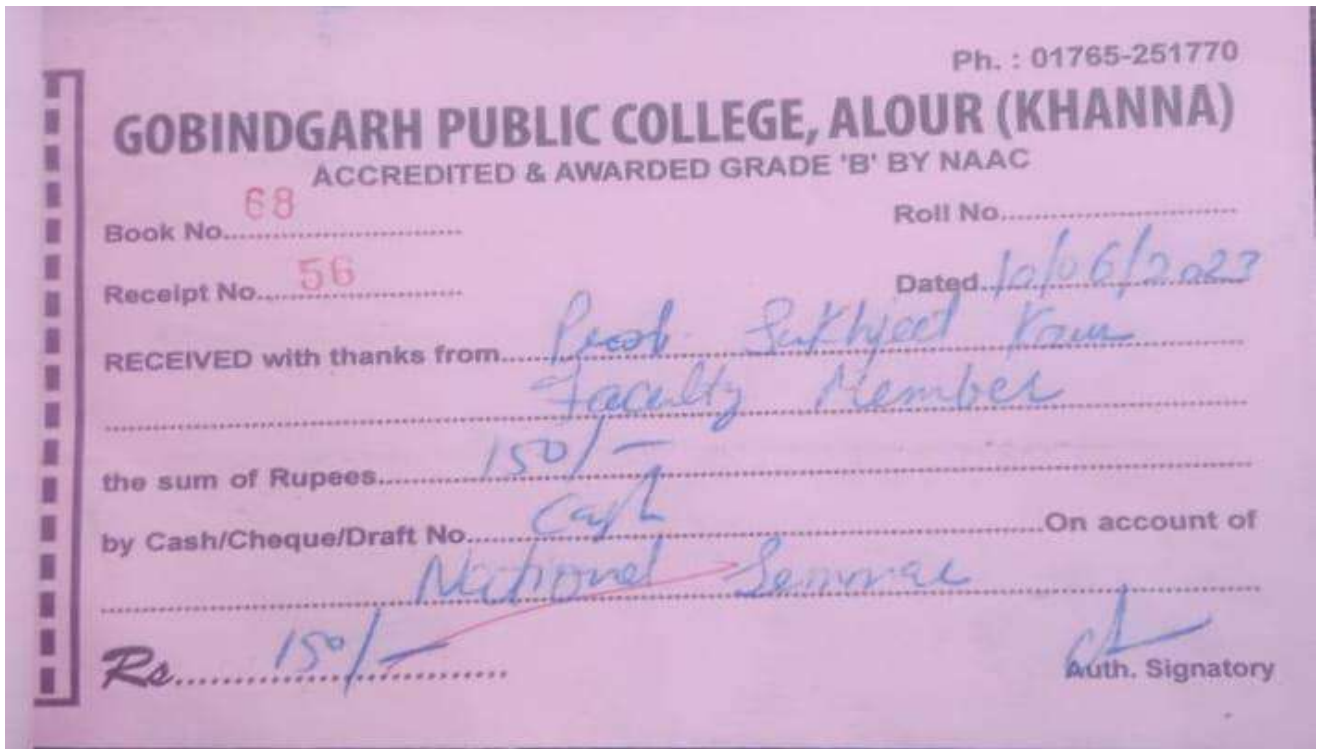 Ph. : 01765-251770
GOBINDGARH PUBLIC COLLEGE, ALOUR (KHANNA)
ACCREDITED & AWARDED GRADE 'B' BY NAAC
Book No. 68 Roll No.
Receipt No. 56 Dated 10/06/2023
RECEIVED with thanks from Prof. Sukhjeet Kaur
Faculty Member
the sum of Rupees 150/-
by Cash/Cheque/Draft No. Cash On account of
National Seminar
Rs. 150/-
Auth. Signatory